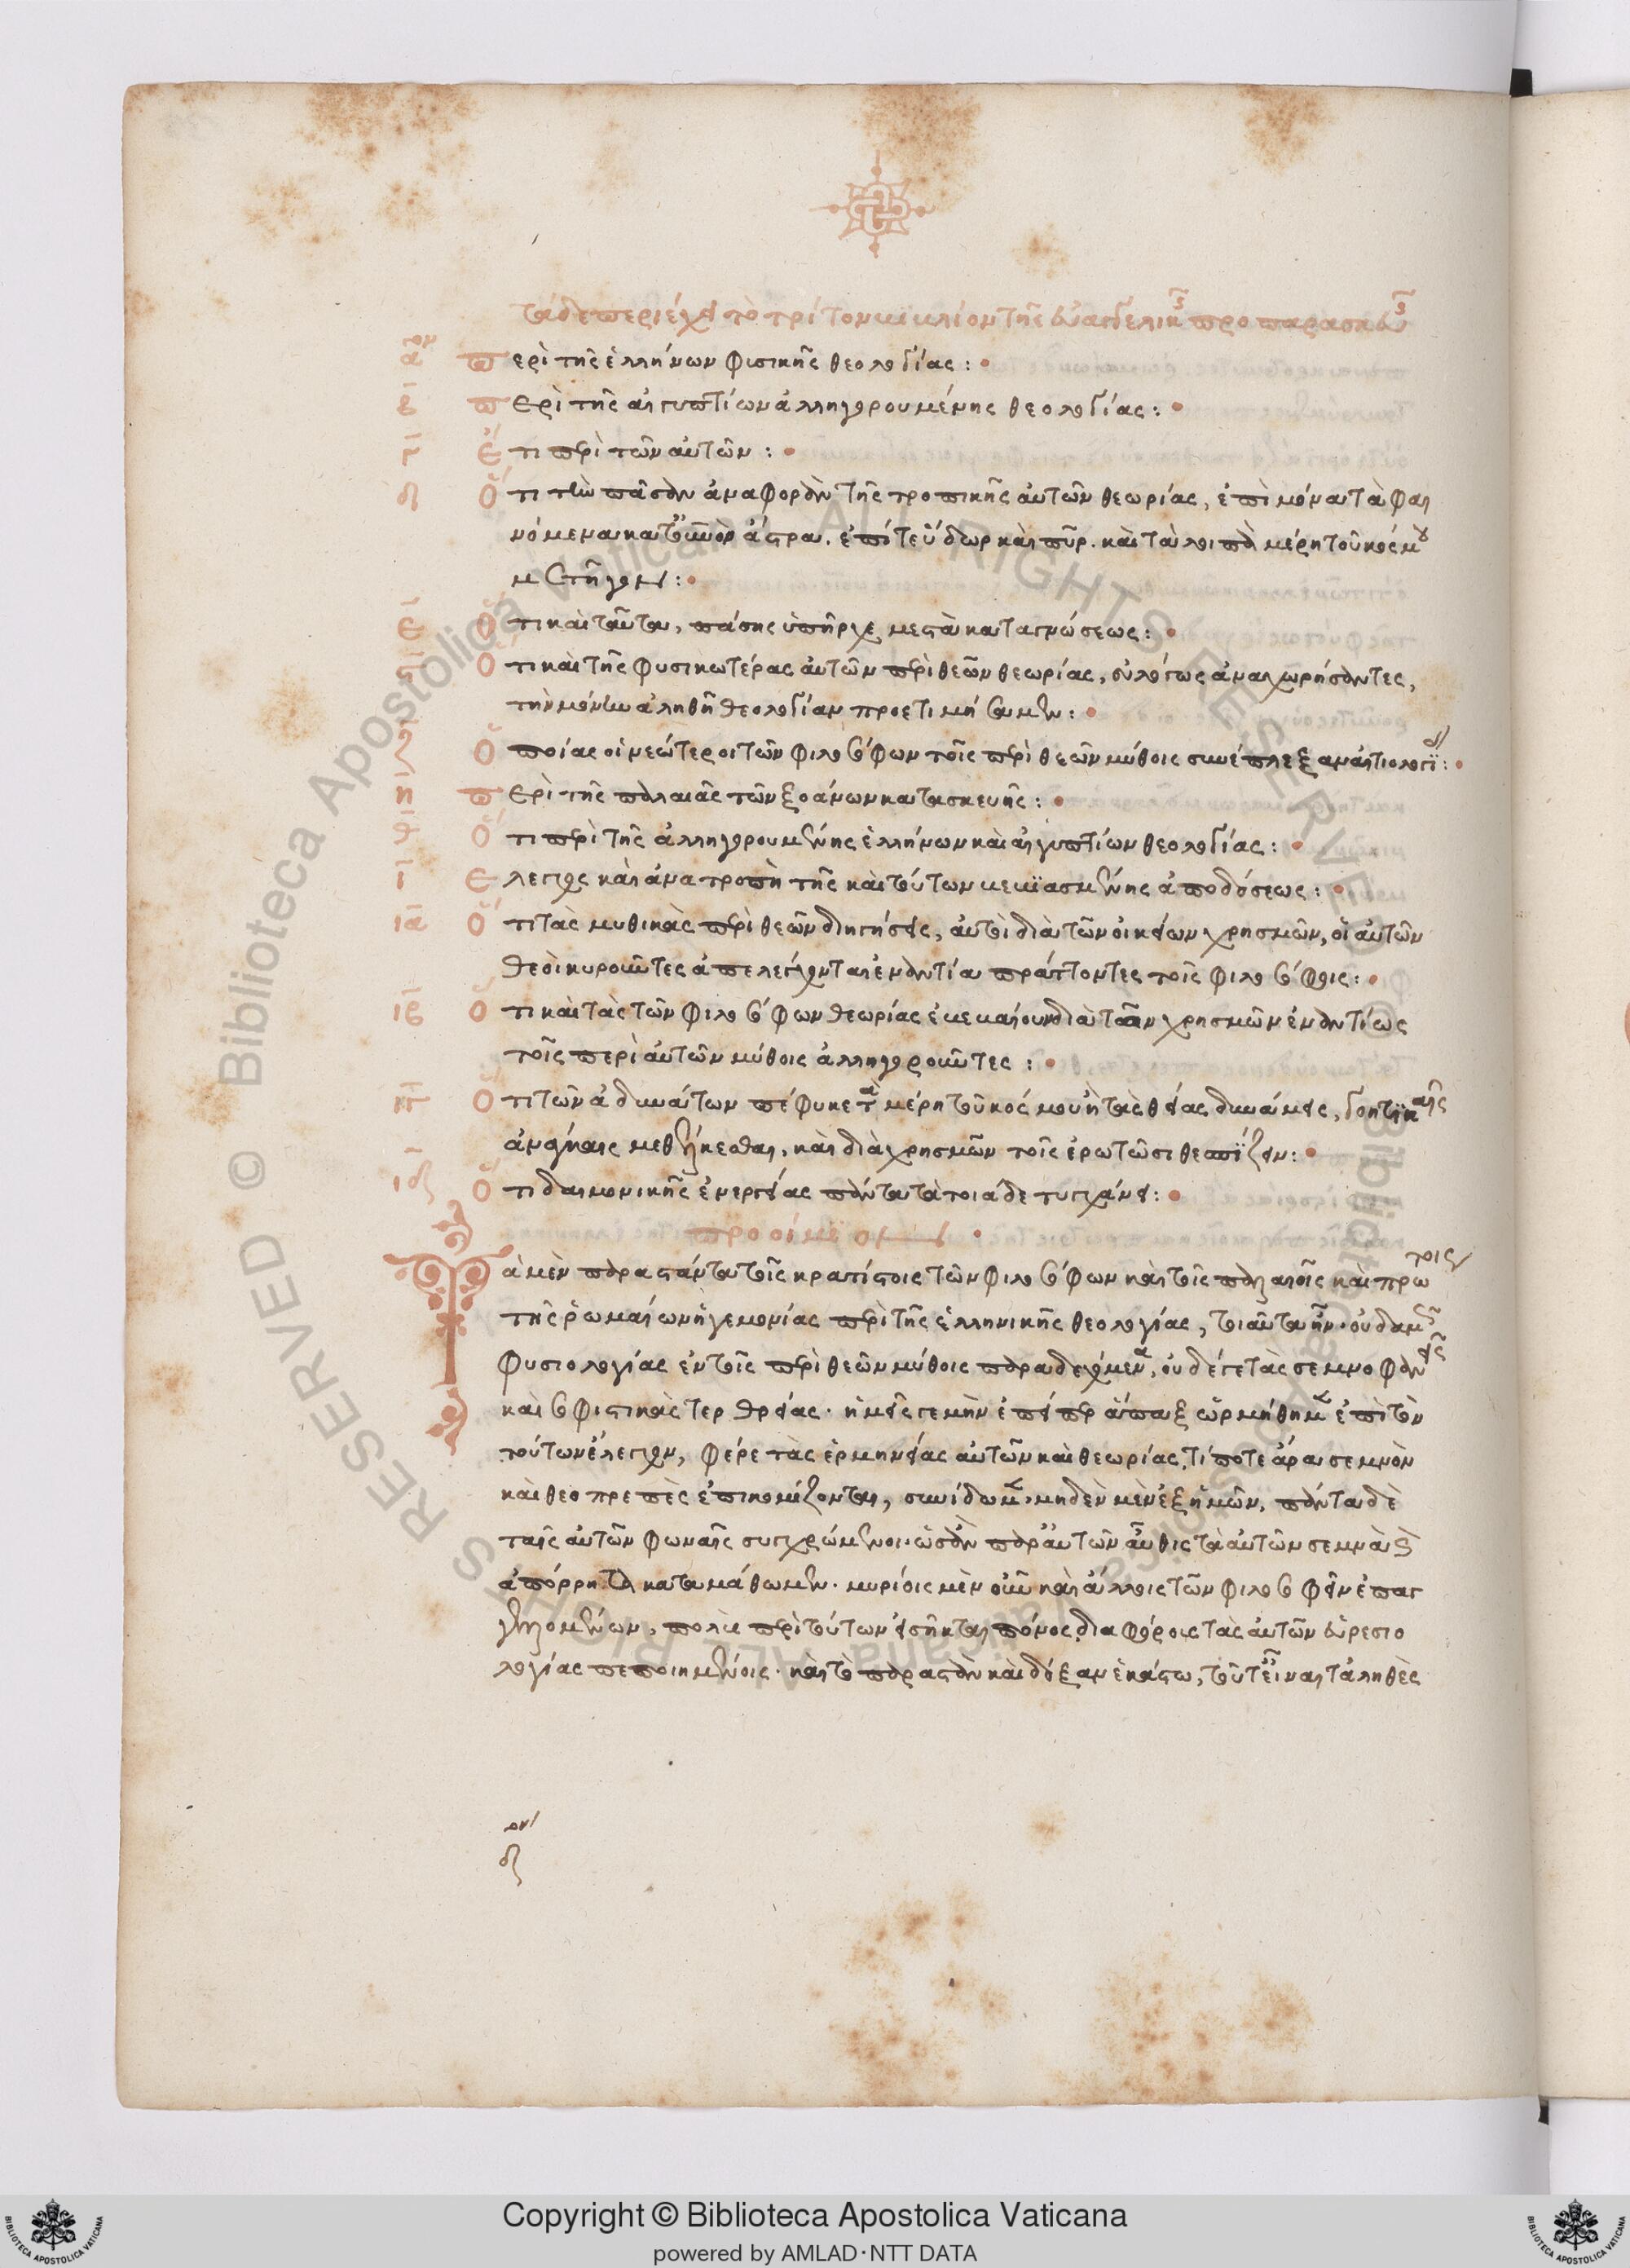 τάδε περιέχει τὸ τρίτον κυκλίον τῆς εὐαγγελικῆς προπαρασκευῆς
αον περὶ τῆς ἑλλήνων φυσικῆς θεολογίας :
β περὶ τῆς αἰγυπτίων ἀλληγορουμένης θεολογίας :
γ ἔτι περὶ τῶν αὐτῶν :
δ ὅτι τὴν πᾶσαν ἀναφορὰν τῆς τροπικῆς αὐτῶν θεωρίας, ἐπὶ μόνα τὰ φαι
νόμενα κατ' οὐρανὸν ἄστρα. ἐπί τε ὕδωρ καὶ πῦρ. καὶ τὰ λοιπὰ μέρη τοῦ κόσμου
μετῆγον :
ε ὅτι καὶ ταῦτα, πάσης ὑπῆρχε μεστὰ καταγνώσεως :
ὅτι καὶ τῆς φυσικωτέρας αὐτῶν περὶ θεῶν θεωρίας, εὐλόγως ἀναχωρήσαντες,
τὴν μόνην ἀληθῆ θεολογίαν προετιμήσαμεν :
ζ ὁποίας οἱ νεώτεροι τῶν φιλοσόφων τοῖς περὶ θεῶν μύθοις συνέπλεξαν αἰτιολογί :
η περὶ τῆς παλαιᾶς τῶν ξοάνων κατασκευῆς :
θ ὅτι περὶ τῆς ἀλληγορουμένης ἑλλήνων καὶ αἰγυπτίων θεολογίας :
ι ἔλεγχος καὶ ἀνατροπὴ τῆς καὶ τούτων βεβιασμένης ἀποδόσεως :
ια ὅτι τὰς μυθικὰς περὶ θεῶν διηγήσεις, αὐτοὶ διὰ τῶν οἰκείων χρησμῶν, οἱ αὐτῶν
θεοὶ κυροῦντες ἀπελέγχονται ἐναντία πράττοντες τοῖς φιλοσόφοις :
ιβ ὅτι καὶ τὰς τῶν φιλοσόφων θεωρίας ἐβεβαίουν διὰ τῶν χρησμῶν ἐναντίως
τοῖς περὶ αὐτῶν μύθοις ἀλληγοροῦντες :
ιγ ὅτι τῶν ἀδυνάτων πέφυκε τὰ μέρη τοῦ κόσμου ἢ τὰς θείας δυνάμεις, γοητικαῖς
ἀνάγκαις μεθέλκεσθαι, καὶ διὰ χρησμῶν τοῖς ἐρωτῶσι θεσπίζειν :
ιδ ὅτι δαιμονικῆς ἐνεργείας πάντα τὰ τοιάδε τυγχάνει :
προοίμιον
Τὰ μὲν παραστάντα τοῖς κρατίστοις τῶν φιλοσόφων καὶ τοῖς παλαιοῖς καὶ πρώτοις
τῆς ῥωμαίων ἡγεμονίας περὶ τῆς ἑλληνικῆς θεολογίας, τοιαῦτα ἦν. οὐδαμῶς
φυσιολογίας ἐν τοῖς περὶ θεῶν μύθοις παραδεχόμενα, οὐδέ γε τὰς σεμνοφανεῖς
καὶ σοφιστικὰς τερθρείας. ἡμεῖς γε μὴν ἐπείπερ ἅπαξ ὡρμήθημεν ἐπὶ τὸν
τούτων ἔλεγχον, φέρε τὰς ἑρμηνείας αὐτῶν καὶ θεωρίας, τί ποτε ἄρα σεμνὸν
καὶ θεοπρεπὲς ἐπικομίζονται, συνίδωμεν. μηδὲν μὲν ἐξ ἡμῶν, πάντα δὲ
ταῖς αὐτῶν φωναῖς συγχρώμενοι. ὡς ἂν παρ' αὐτῶν αὖθις τὰ αὐτῶν σεμνὰ καὶ
ἀπόρρητα καταμάθωμεν. μυρίοις μὲν οὖν καὶ ἄλλοις τῶν φιλοσοφεῖν ἐπαγ
γελλομένων, πολὺς περὶ τούτων εἰσῆκται πόνος, διαφόροις τὰς αὐτῶν εὑρεσιο
λογίας πεποιημένοις. καὶ τὸ παραστὰν καὶ δόξαν ἑκάστω, τοῦτ' εἶναι τἀληθὲς
© Biblioteca Apostolica Vaticana ALL RIGHTS RESERVED
Copyright © Biblioteca Apostolica Vaticana
powered by AMLAD·NTT DATA
BIBLIOTECA APOSTOLICA VATICANA
BIBLIOTECA APOSTOLICA VATICANA